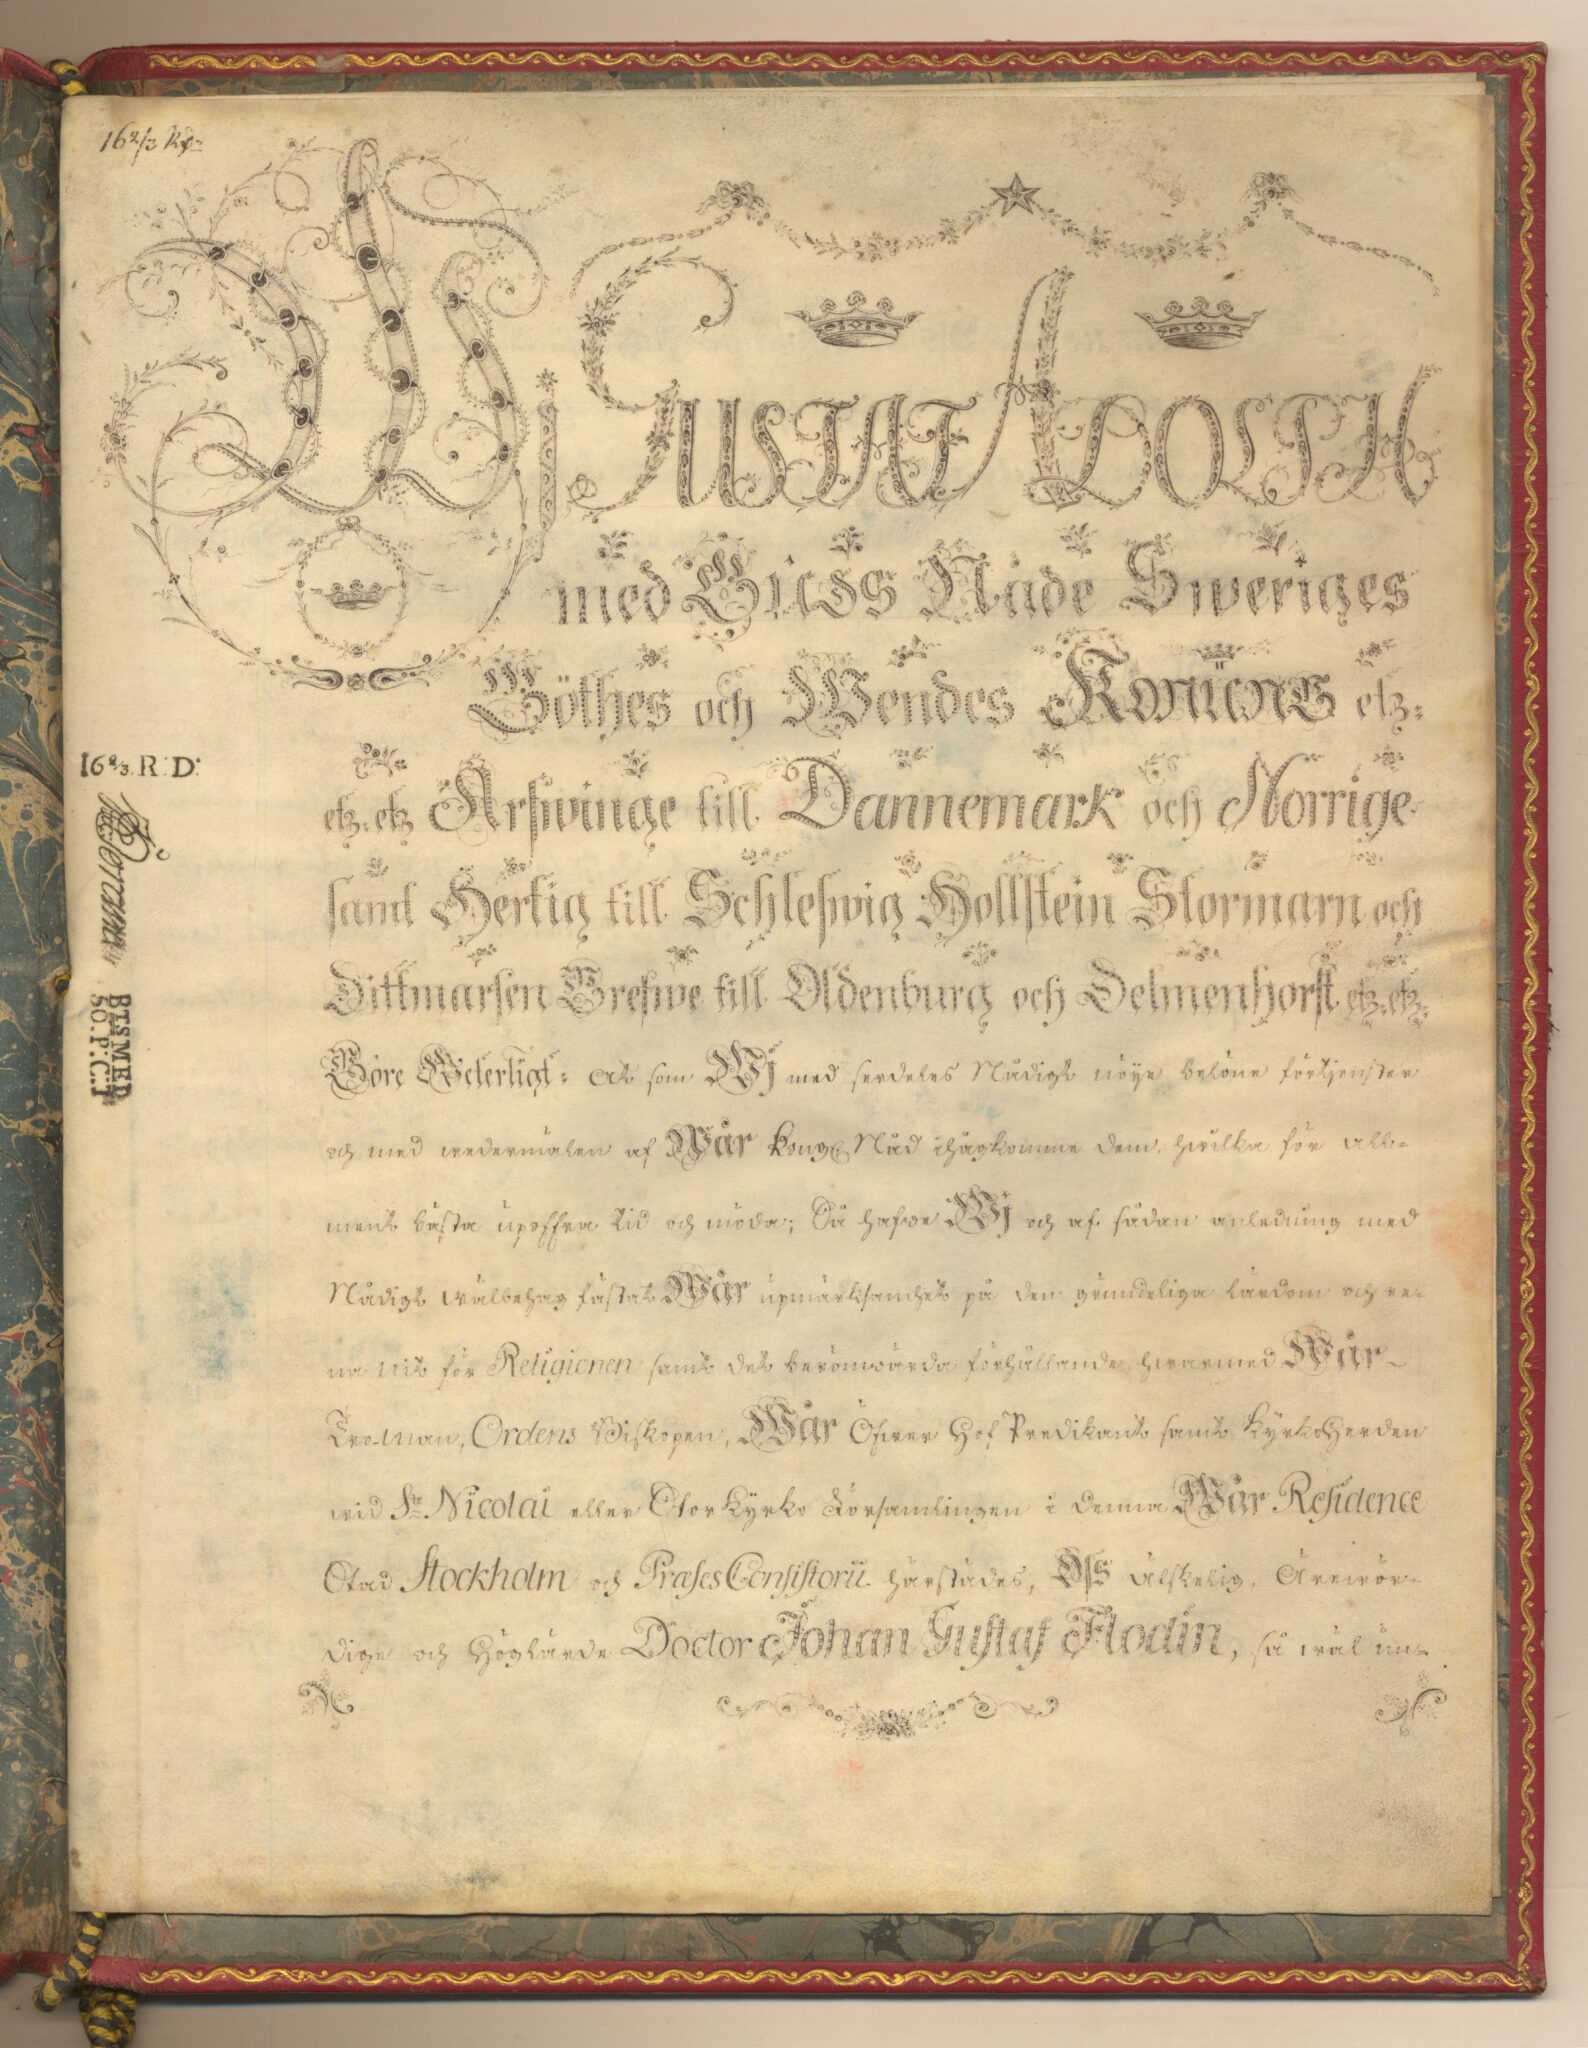 16 2/3 Rd:
Wi Gustaf Adolph
med Guds Nåde Sweriges
Göthes och Wendes Konung etz:
etz: etz Arfwinge till Dannemark och Norrige
samt Hertig till Schleswig Hollstein Stormarn och
Dittmarsen Grefwe till Oldenburg och Delmenhorst etz: etz:
16 2/3. R: D:
Göre Weterligt: at som Wj med serdeles Nådigt nöye belöne förtjenster
och med wedermälen af Wår Kongl Nåd ihågkomme dem, hwilka för all-
ment bästa upoffra tid och möda; Så hafwe Wj och af sådan anledning med
Nådigt wälbehag fästat Wår upmärksamhet på den grundeliga lärdom och re-
na nit för Religionen samt det berömwärda förhållande, hwarmed Wår
Tro-Man, Ordens Biskopen, Wår Öfwer Hof Predikant samt KyrkoHerden
wid Ste Nicolai eller StorKyrko Församlingen i denna Wår Residence
Stad Stockholm och Præses Consistorii härstädes, Oss älskelig, Ärewör-
dige och Höglärde Doctor Johan Gustaf Flodin, så wäl un-